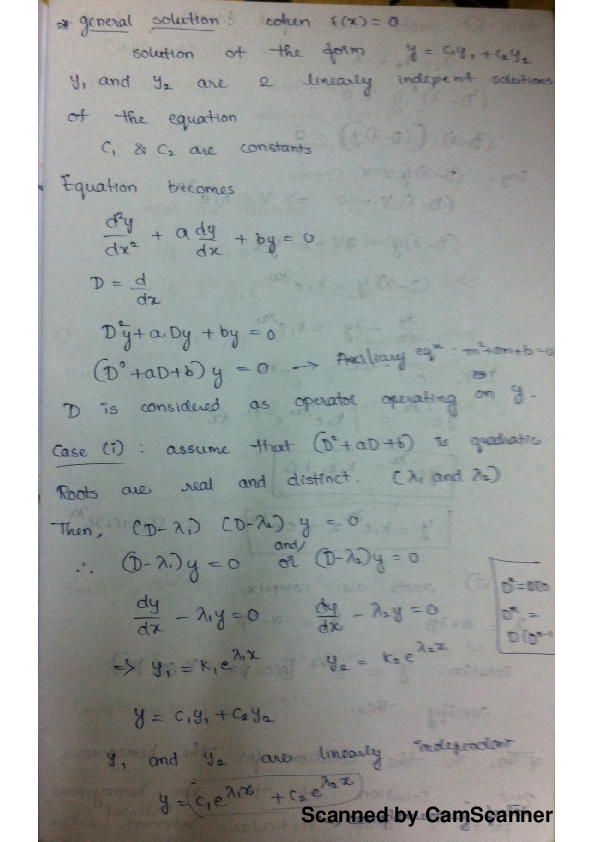 * general solution : when r(x) = 0
solution of the form y = C₁y₁ + C₂y₂
y₁ and y₂ are 2 linearly indepent solutions
of the equation
C₁ & C₂ are constants
Equation becomes
d²y/dx² + a dy/dx + by = 0
D = d/dx
D²y + a.Dy + by = 0
(D² + aD + b) y = 0 → Auxiliary eqⁿ : m²+am+b=0
D is considered as operator operating on y.
Case (i) : assume that (D² + aD + b) is quadratic
Roots are real and distinct. (λ₁ and λ₂)
Then, (D-λ₁) (D-λ₂) y = 0
∴ (D-λ₁)y = 0 and/or (D-λ₂)y = 0
dy/dx - λ₁y = 0 dy/dx - λ₂y = 0
D² =
Dⁿ =
D(Dⁿ⁻¹
⇒ y₁ = k₁e^λ₁x y₂ = k₂e^λ₂x
y = C₁y₁ + C₂y₂
y₁ and y₂ are linearly independent
y = C₁e^λ₁x + C₂e^λ₂x
Scanned by CamScanner